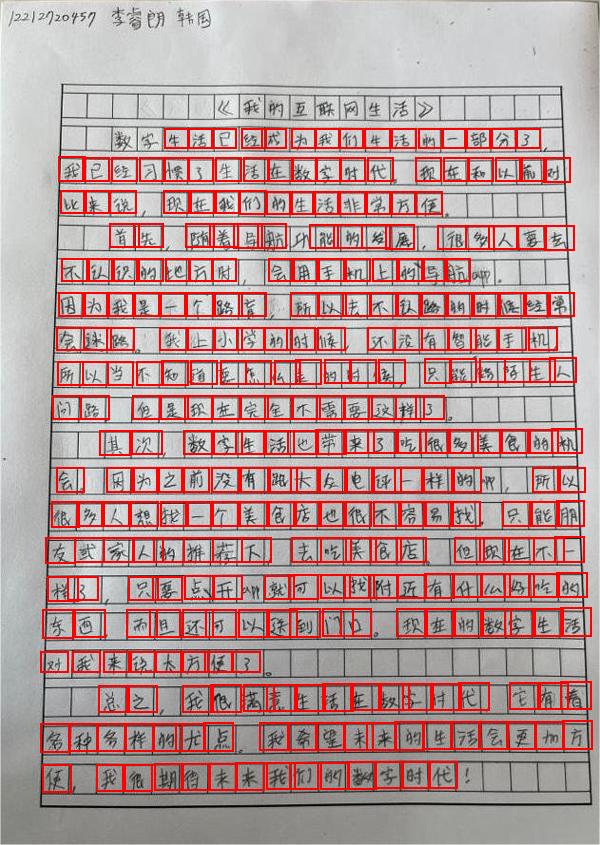 12212720457 李睿朗 韩国
《我的互联网生活》
数字生活已经成为我们生活的一部分了,
我已经习惯了生活在数字时代。现在和以前对
比来说,现在我们的生活非常方便。
首先,随着导航功能的发展,很多人要去
不认识的地方时,会用手机上的导航app。
因为我是一个路盲,所以去不认路的时候经常
会迷路。我上小学的时候,还没有智能手机
所以当不知道要怎么走的时候,只能跟陌生人
问路,但是现在完全不需要这样了。
其次,数字生活也带来了吃很多美食的机
会。因为之前没有跟大众电评一样的app,所以
很多人想找一个美食店也很不容易找。只能朋
友或家人的推荐下,去吃美食店。但现在不一
样了,只要点开app就可以找附近有什么好吃的
东西,而且还可以送到门口。现在的数字生活
对我来说太方便了。
总之,我很满意生活在数字时代,它有着
各种多样的尤点。我希望未来的生活会更加方
便,我很期待未来我们的数字时代!